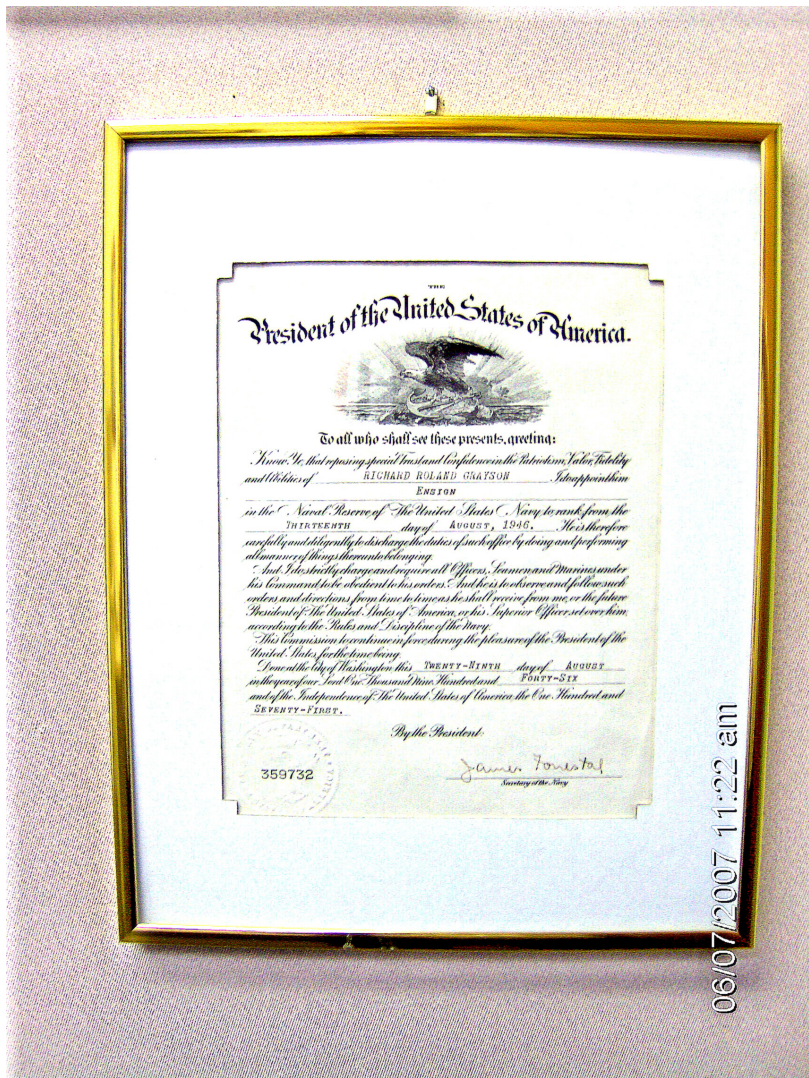 THE
President of the United States of America.
To all who shall see these presents, greeting:
Know Ye, that reposing special Trust and Confidence in the Patriotism, Valor, Fidelity
and Abilities of RICHARD ROLAND GRAYSON I do appoint him
ENSIGN
in the Naval Reserve of The United States Navy to rank from the
THIRTEENTH day of AUGUST, 1946. He is therefore
carefully and diligently to discharge the duties of such office by doing and performing
all manner of things thereunto belonging.
And I do strictly charge and require all Officers, Seamen and Marines under
his Command to be obedient to his orders. And he is to observe and follow such
orders and directions from time to time as he shall receive from me, or the future
President of The United States of America, or his Superior Officer set over him,
according to the Rules and Discipline of the Navy.
This Commission to continue in force during the pleasure of the President of the
United States for the time being.
Done at the City of Washington this TWENTY-NINTH day of AUGUST
in the year of our Lord One Thousand Nine Hundred and FORTY-SIX
and of the Independence of The United States of America the One Hundred and
SEVENTY-FIRST.
By the President:
359732
James Forrestal
Secretary of the Navy
06/07/2007 11:22 am